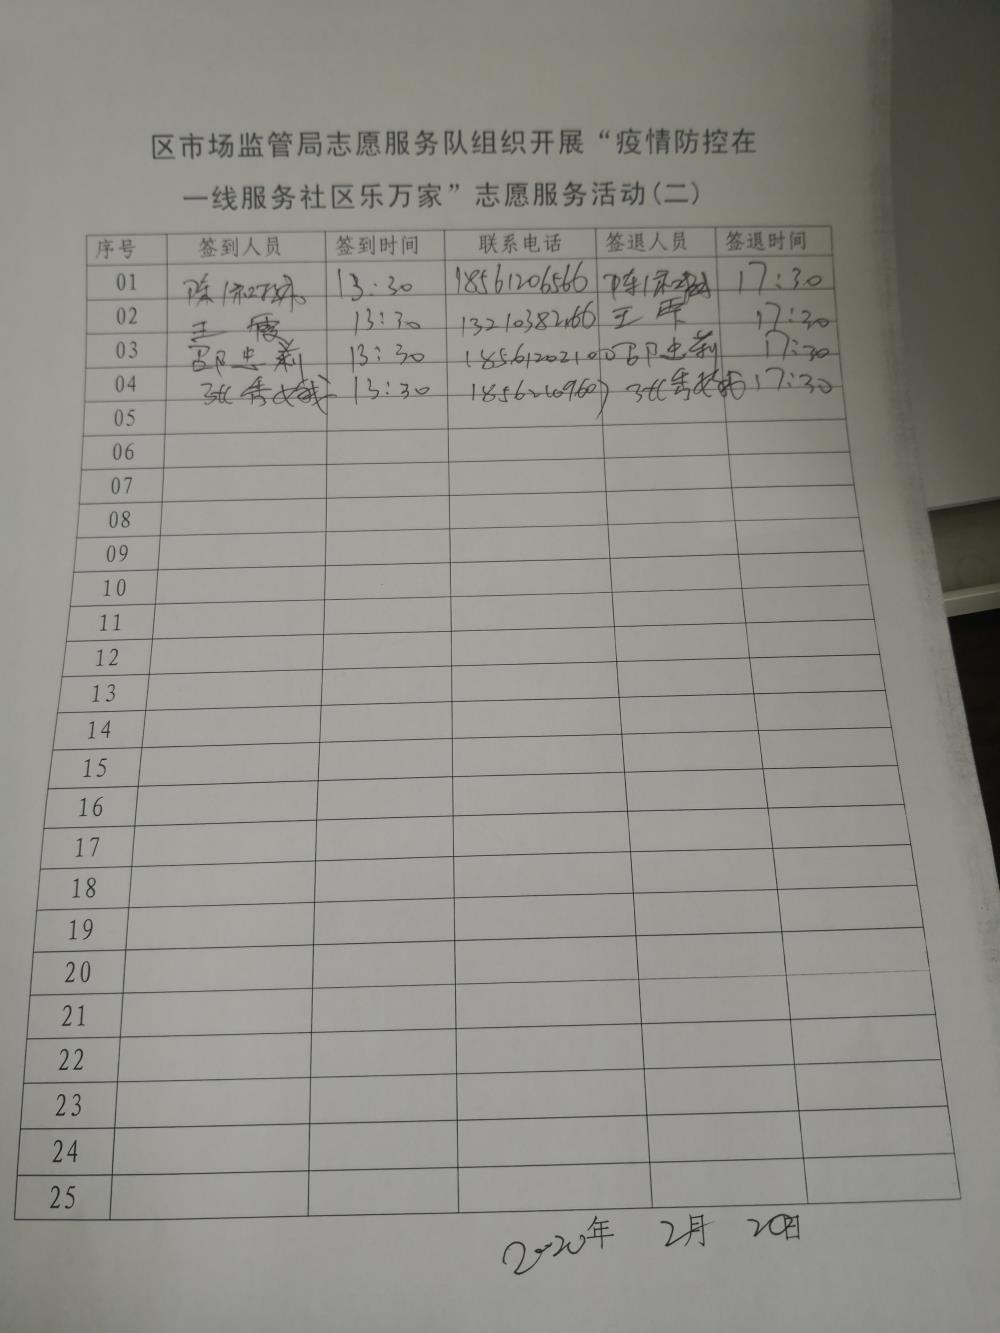 区市场监管局志愿服务队组织开展“疫情防控在
一线服务社区乐万家”志愿服务活动(二)
序号 签到人员 签到时间 联系电话 签退人员 签退时间
01 13:30 18561206566 17:30
02 王霞 13:30 王霞 17:30
03 13:30 17:30
04 13:30 17:30
05
06
07
08
09
10
11
12
13
14
15
16
17
18
19
20
21
22
23
24
25
2020年 2月 20日